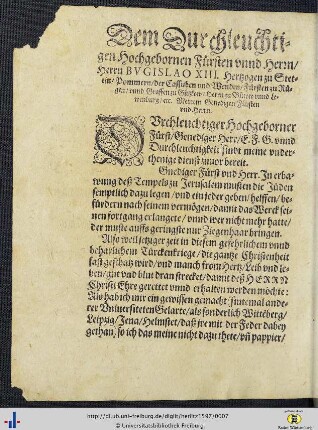 Dem Durchleuchti-
gen Hochgebornen Fürsten vnnd Herrn/
Herrn BVGISLAO XIII. Hertzogen zu Stet-
tin/ Pommern/ der Cassuben vnd Wenden/ Fürsten zu Rü-
gen/ vnnd Graffen zu Gützkow/ Herrn zu Bütow vnd Le-
wenburg/ etc. Meinem Genedigen Fürsten
vnd Herrn.
DVrchleuchtiger Hochgeborner
Fürst/ Genediger Herr/ E. F. G. vnnd
Durchleuchtigkeit sindt meine vnder-
thenige dienst zuuor bereit.
Gnediger Fürst vnd Herr. In erba-
wung deß Tempels zu Jerusalem musten die Jüden
semptlich dazu legen/ vnd ein jeder geben/ helffen/ be-
fürdern nach seinem vermögen/ damit das Werck sei-
nen fortgang erlangete/ vnnd wer nicht mehr hatte/
der muste auffs geringste nur Ziegenhaar bringen.
Also weil jetzger zeit in diesem gefehrlichem vnnd
beharlichem Türckenkriege/ die gantze Christenheit
fast geschatzt wird/ vnd manch from Hertz/ Leib vnd le-
ben/ gut vnd blut dran strecket/ damit deß HERRN
Christi Ehre gerettet vnnd erhalten werden möchte:
Als hab ich mir ein gewissen gemacht/ sintemal ande-
rer Vniuersiteten Gelarte/ als sonderlich Witteberg/
Leipzig/ Jena/ Helmstet/ das jre mit der Feder dabey
gethan/ so ich das meine nicht dazu thete/ vñ pappier/
http://dl.ub.uni-freiburg.de/diglit/herlitz1597/0007
© Universitätsbibliothek Freiburg